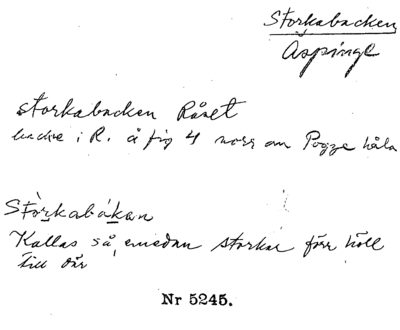 Storkabacken
Äspinge
Storkabacken Råset
backe i R. å fig 4 norr om Pogge håla
Stòrkabákan
Kallas så, emedan storkar förr höll
till där
Nr 5245.